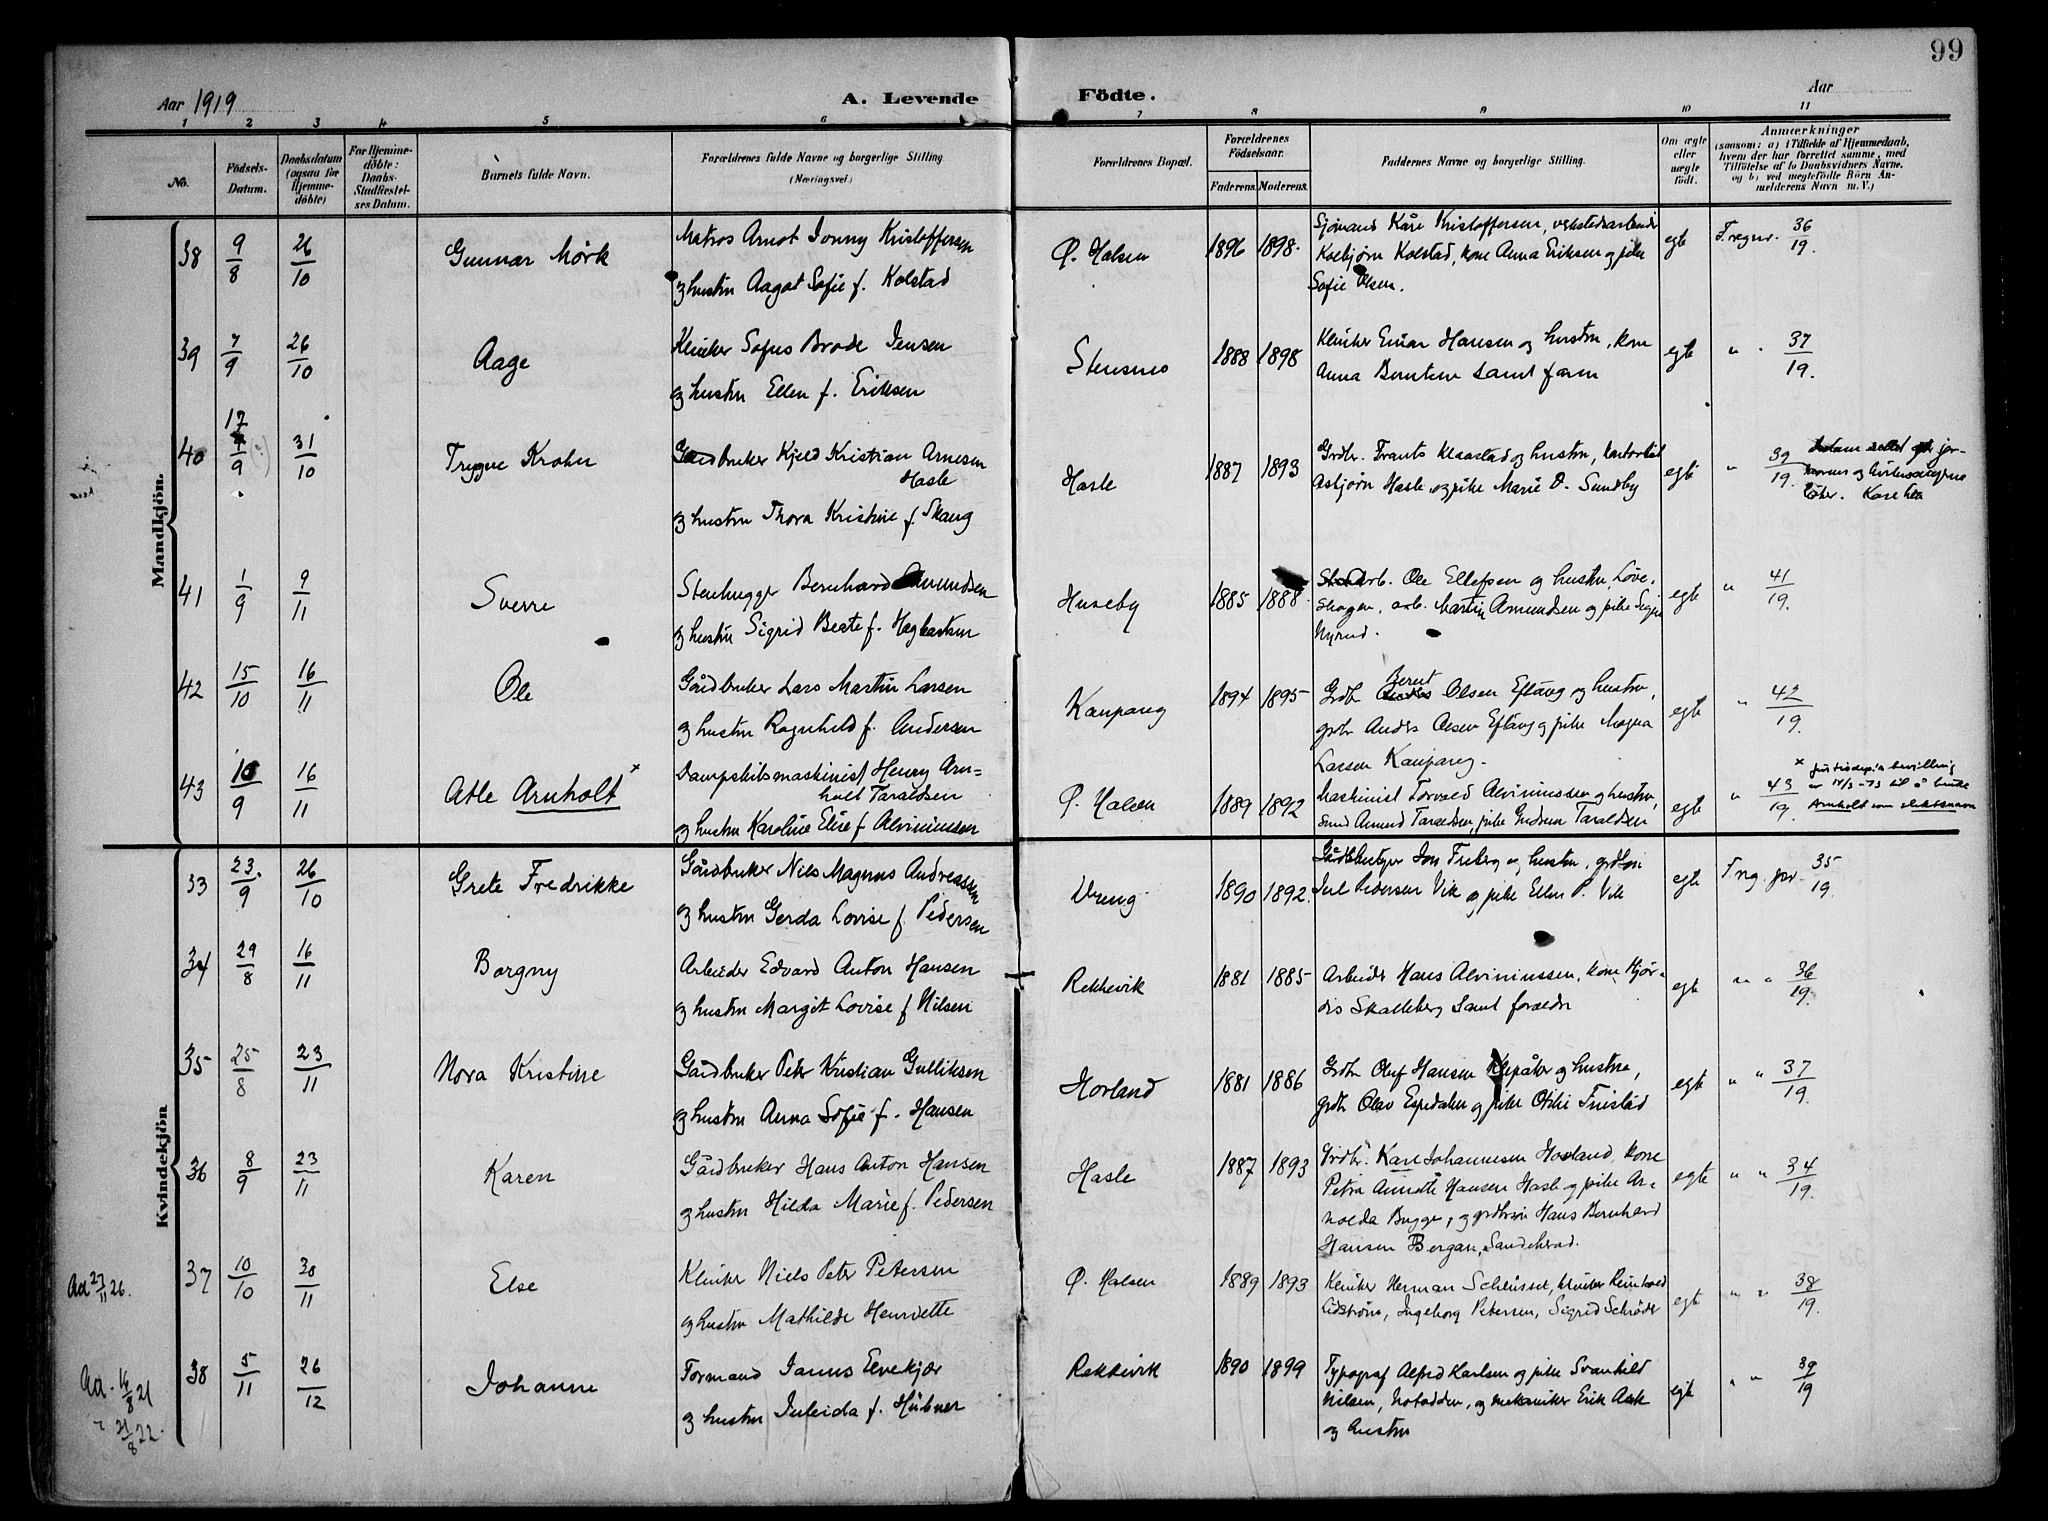 99
Aar 1919
A. Levende
Födte.
Aar
1 2 3 4 5 6 7 8 9 10 11
No.
Födsels-
Datum.
Daabsdatum
(ogsaa for
Hjemme-
döbte)
For Hjemme-
döbte:
Daabs-
Stadfæstel-
ses Datum.
Barnets fulde Navn.
Forældrenes fulde Navne og borgerlige Stilling
(Næringsvei.)
Forældrenes Bopæl.
Forældrenes
Födselsaar.
Faderens. Moderens.
Faddernes Navne og borgerlige Stilling.
Om ægte
eller
uægte
født.
Anmærkninger
(saasom: a) i Tilfælde af Hjemmedaab,
hvem der har forrettet samme, med
Tilföielse af to Daabsvidners Navne.
og b) ved uægtefödte Börn An-
melderens Navn m. V.)
Mandkjön.
38 9/8 26/10 Gunnar Mörk
Matros Arnot Jonny Kristoffersen
og hustru Aagot Sofie f. Kolstad
Ø. Halsen 1896 1898.
Sjömand Kåre Kristoffersen,
Kolstad, kone Anna Eriksen og pike
Sofie Olsen.
egte 36/19.
39 7/9 26/10 Aage
Klinker Sofus Brode Jensen
og hustru Ellen f. Eriksen
1888 1898
Klinker Einar Hansen og hustru, kone
Anna Berntsen samt faren
egte " 37/19.
40 17/9 31/10 Trygve Krohn
Gaardbruker Kjeld Kristian Arnesen
Hasle
og hustru Thora Kristine f. Skaug
Hasle 1887 1893
Grdbr. Frants Klaastad og hustru,
Asbjörn Hasle, og pike Marie O. Sundby
egte " 39/19.
41 1/9 9/11 Sverre
Stenhugger Bernhard Amundsen
og hustru Sigrid Beate f. Hegbartsen
Huseby 1885 1888.
arb. Ole Ellefsen og hustru, Löve-
skogen, arb. Martin Amundsen og pike Signe
Nyrud.
egte " 41/19.
42 15/10 16/11 Ole
Gårdbruker Lars Martin Larsen
og hustru Ragnhild f. Andersen
Kaupang 1894 1895
Grdbr Bernt Olsen Eftang og hustru,
grdbr Anders Olsen Eftang og pike Magna
Larsen Kaupang.
egte " 42/19.
43 10/9 16/11 Atle Arnholt x
Dampskibsmaskinist Henry Arn-
holt Taraldsen
og hustru Karoline Elise f. Alvinussen
Ø. Halsen 1889 1892
Maskinist Torvald Alvinussen og hustru,
Amund Taraldsen, pike Gudrun Taraldsen
egte " 43/19.
x Justisdep.'s bevilling
14/3-73 til å bruke
Arnholt som slektsnavn
Kvindekjön
33 23/9 26/10 Grete Fredrikke
Gårdbruker Nils Magnus Andreassen
og hustru Gerda Lovise f. Pedersen
Vreng 1890 1892.
Jon Friberg og hustru,
Pedersen Vik og pike Ellen P. Vik
egte 35/19.
34 29/8 16/11 Borgny
Arbeider Edvard Anton Hansen
og hustru Margit Lovise f Nilsen
Rekkevik 1881 1885
Arbeider Hans Alvinussen, kone Hjör-
dis Skalleberg samt foreldre
egte " " 36/19.
35 25/8 23/11 Nora Kristine
Gårdbruker Peter Kristian Gulliksen
og hustru Anna Sofie f. Hansen
Hovland 1881 1886
Grdbr Oluf Hansen Klepåker og hustru,
grdbr Olav Espedalen og pike Otilie Tuistad
egte " " 37/19.
36 8/9 23/11 Karen
Gårdbruker Hans Anton Hansen
og hustru Hilda Marie f. Pedersen
Hasle 1887 1893
Grdbr. Karl Johannesen Hovland, kone
Petra Annette Hansen Hasle og pike Ar-
nolda Bugge, og grdbrsön Hans Bernhard
Hansen Bergan, Sandeherad.
egte " " 34/19.
Ad 27/11 26.
37 10/10 30/11 Else
Klinker Niels Peter Petersen
og hustru Mathilde Henriette
Ø. Halsen 1889 1893
Klinker Herman Schlüssel, klinker Reinhold
Lidström, Ingeborg Petersen, Sigrid Schröder
egte " " 38/19.
Ad. 16/8 21
" 31/8 22.
38 5/11 26/12 Johanne
Formand Janus Elvekjær
og hustru Juleida f. Hübner
Rekkevik 1890 1899
Typograf Alfred Karlsen og pike Svanhilt
Nilsen, Notodden, og mekaniker Erik Aak
og hustru
egte " " 39/19